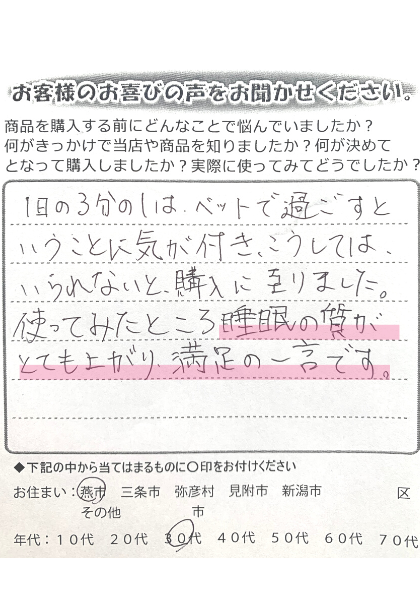 お客様のお喜びの声をお聞かせください。
商品を購入する前にどんなことで悩んでいましたか？
何がきっかけで当店や商品を知りましたか？何が決めて
となって購入しましたか？実際に使ってみてどうでしたか？
1日の3分の1は、ベットで過ごすと
いうことに気が付き、こうしては、
いられないと、購入に至りました。
使ってみたところ睡眠の質が
とても上がり、満足の一言です。
◆下記の中から当てはまるものに〇印をお付けください
お住まい：燕市 三条市 弥彦村 見附市 新潟市 区
その他 市
年代：10代 20代 30代 40代 50代 60代 70代